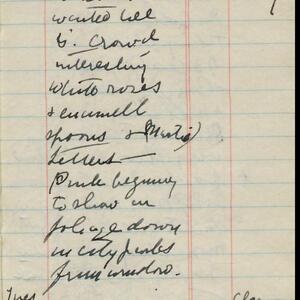 wanted
B. Crowd
interesting
white roses
& enamell
spoons &
Letters—
Pink beginning
to show in
foliage down
in city parks
from window.